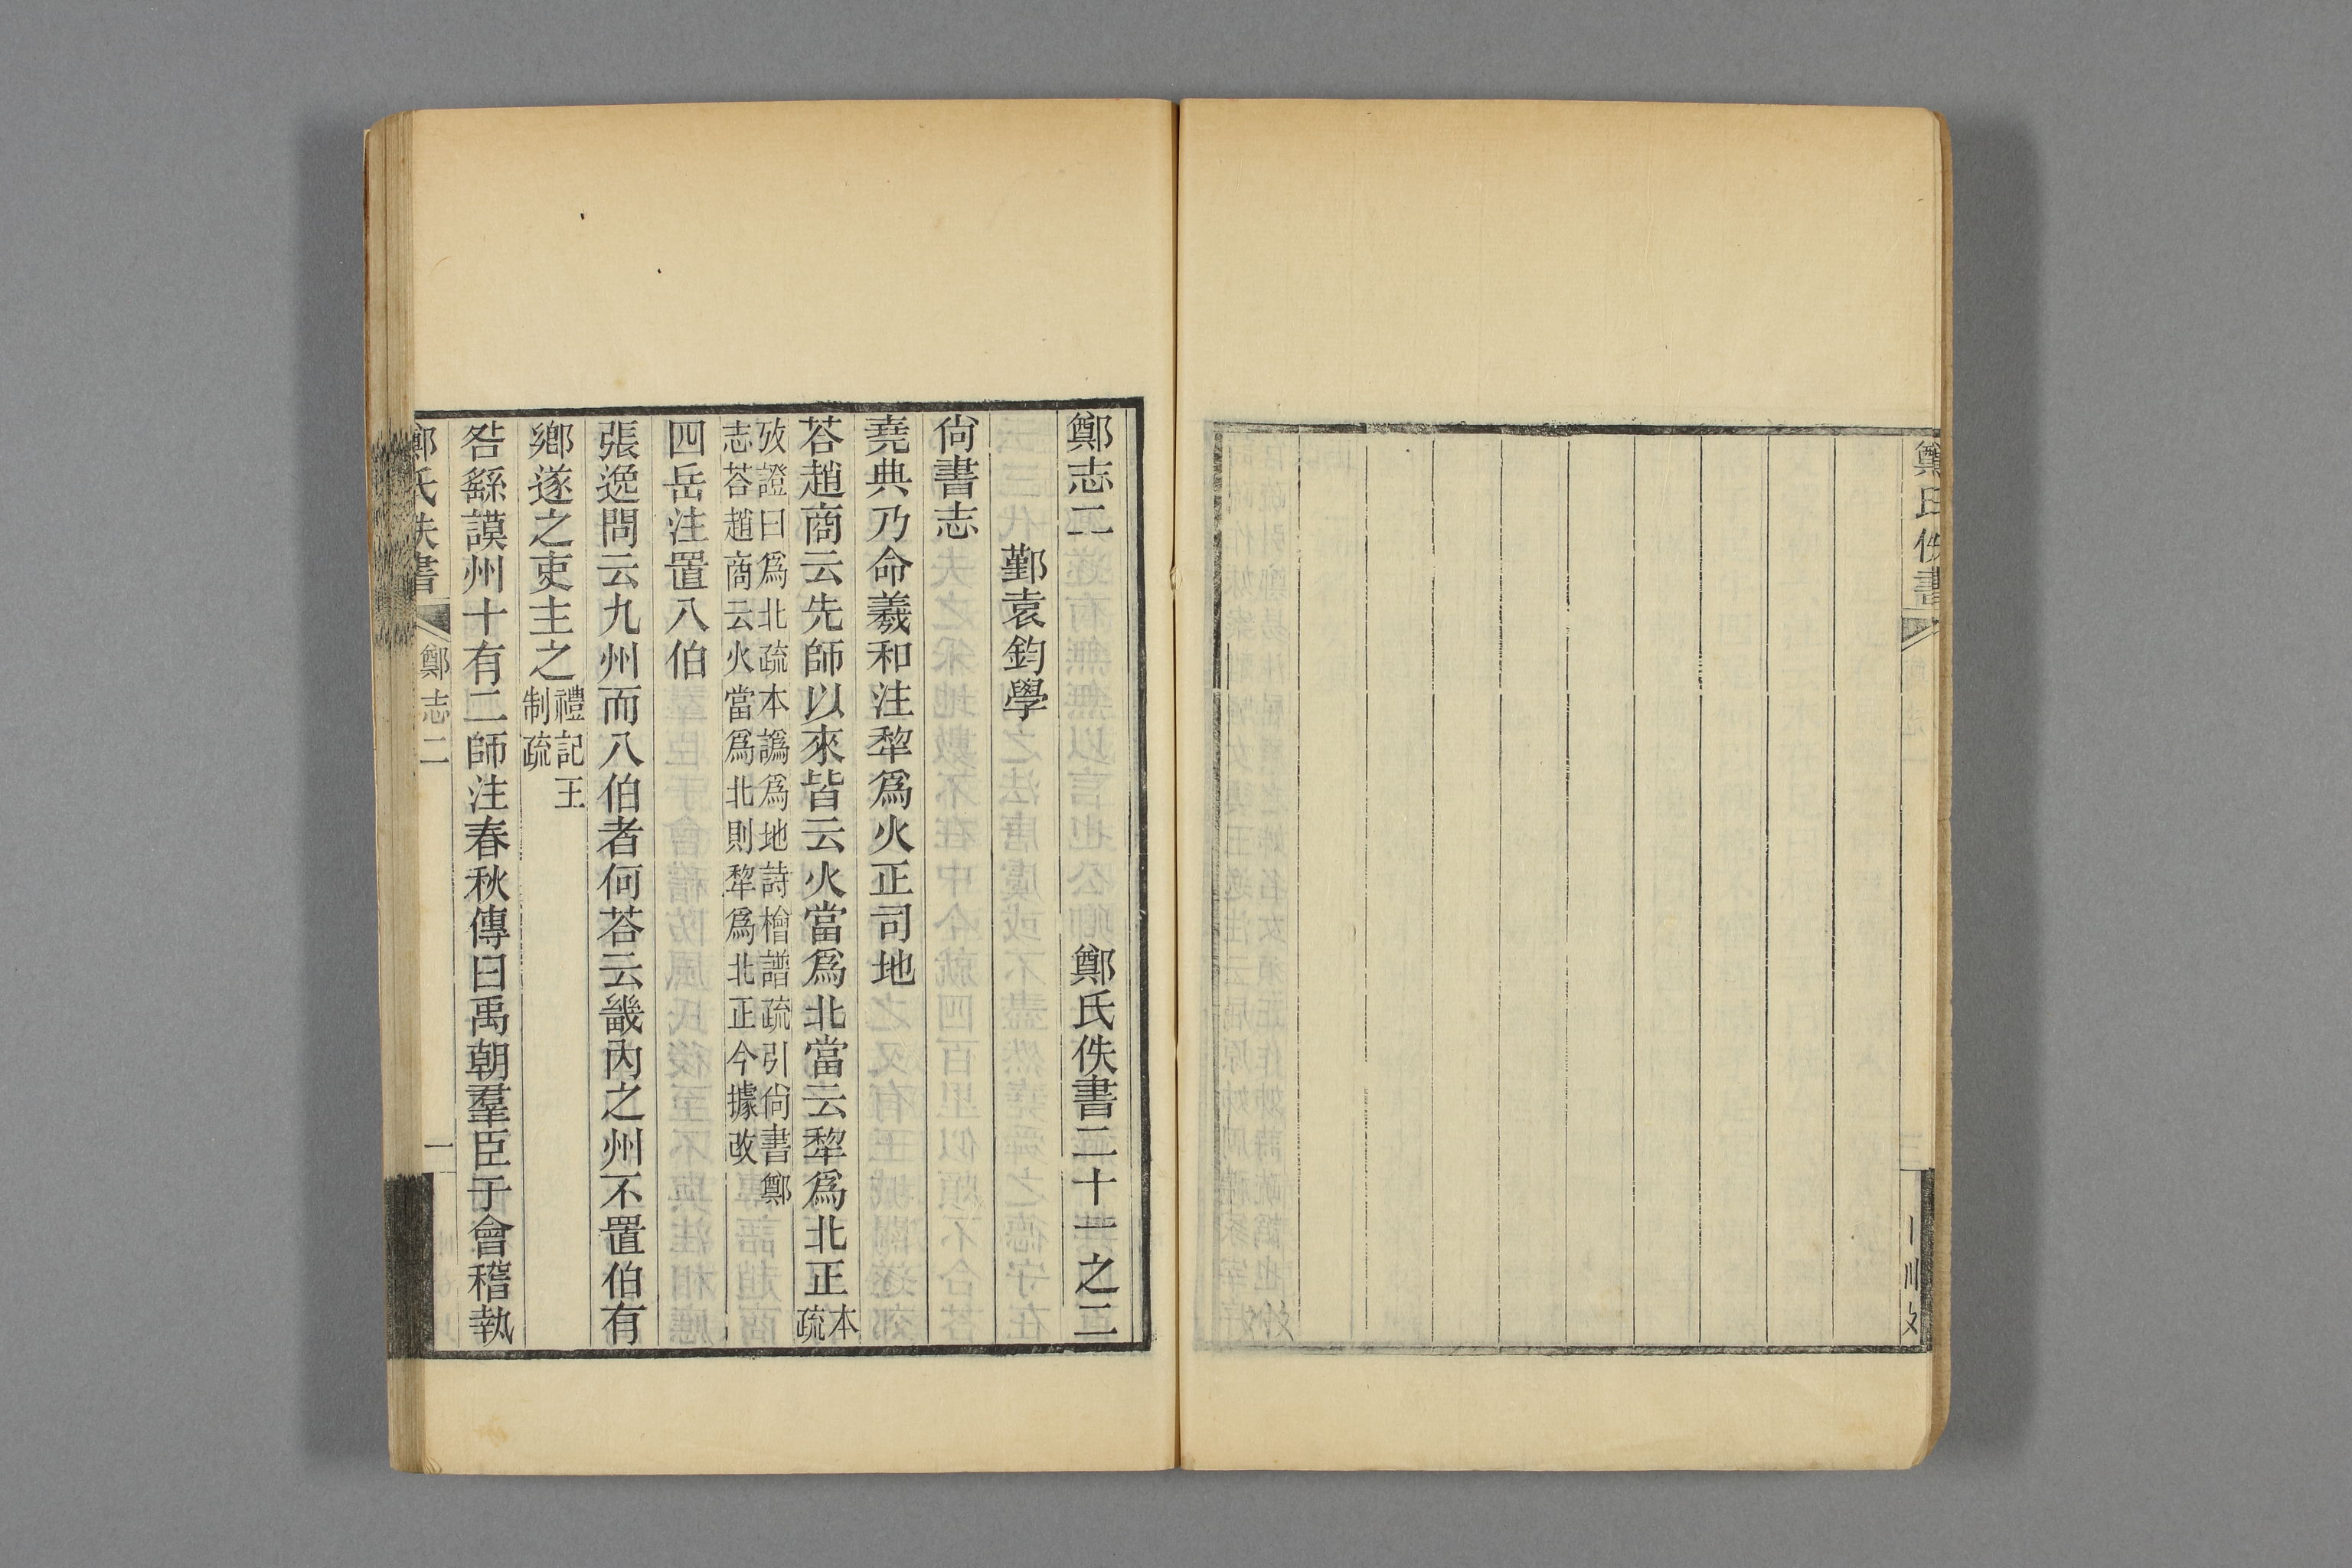 鄭氏佚書
鄭志二　鄭氏佚書二十一之二
鄞袁鈞學
尙書志
堯典乃命羲和注犂爲火正司地
荅趙商云先師以來皆云火當爲北當云犂爲北正本疏
攷證曰爲北疏本譌爲地詩檜譜疏引尙書鄭
志荅趙商云火當爲北則犂爲北正今據改
四岳注置八伯
張逸問云九州而八伯者何荅云畿內之州不置伯有
鄉遂之吏主之禮記王制疏
咎繇謨州十有二師注春秋傳曰禹朝羣臣于會稽執
鄭氏佚書　鄭志二　一